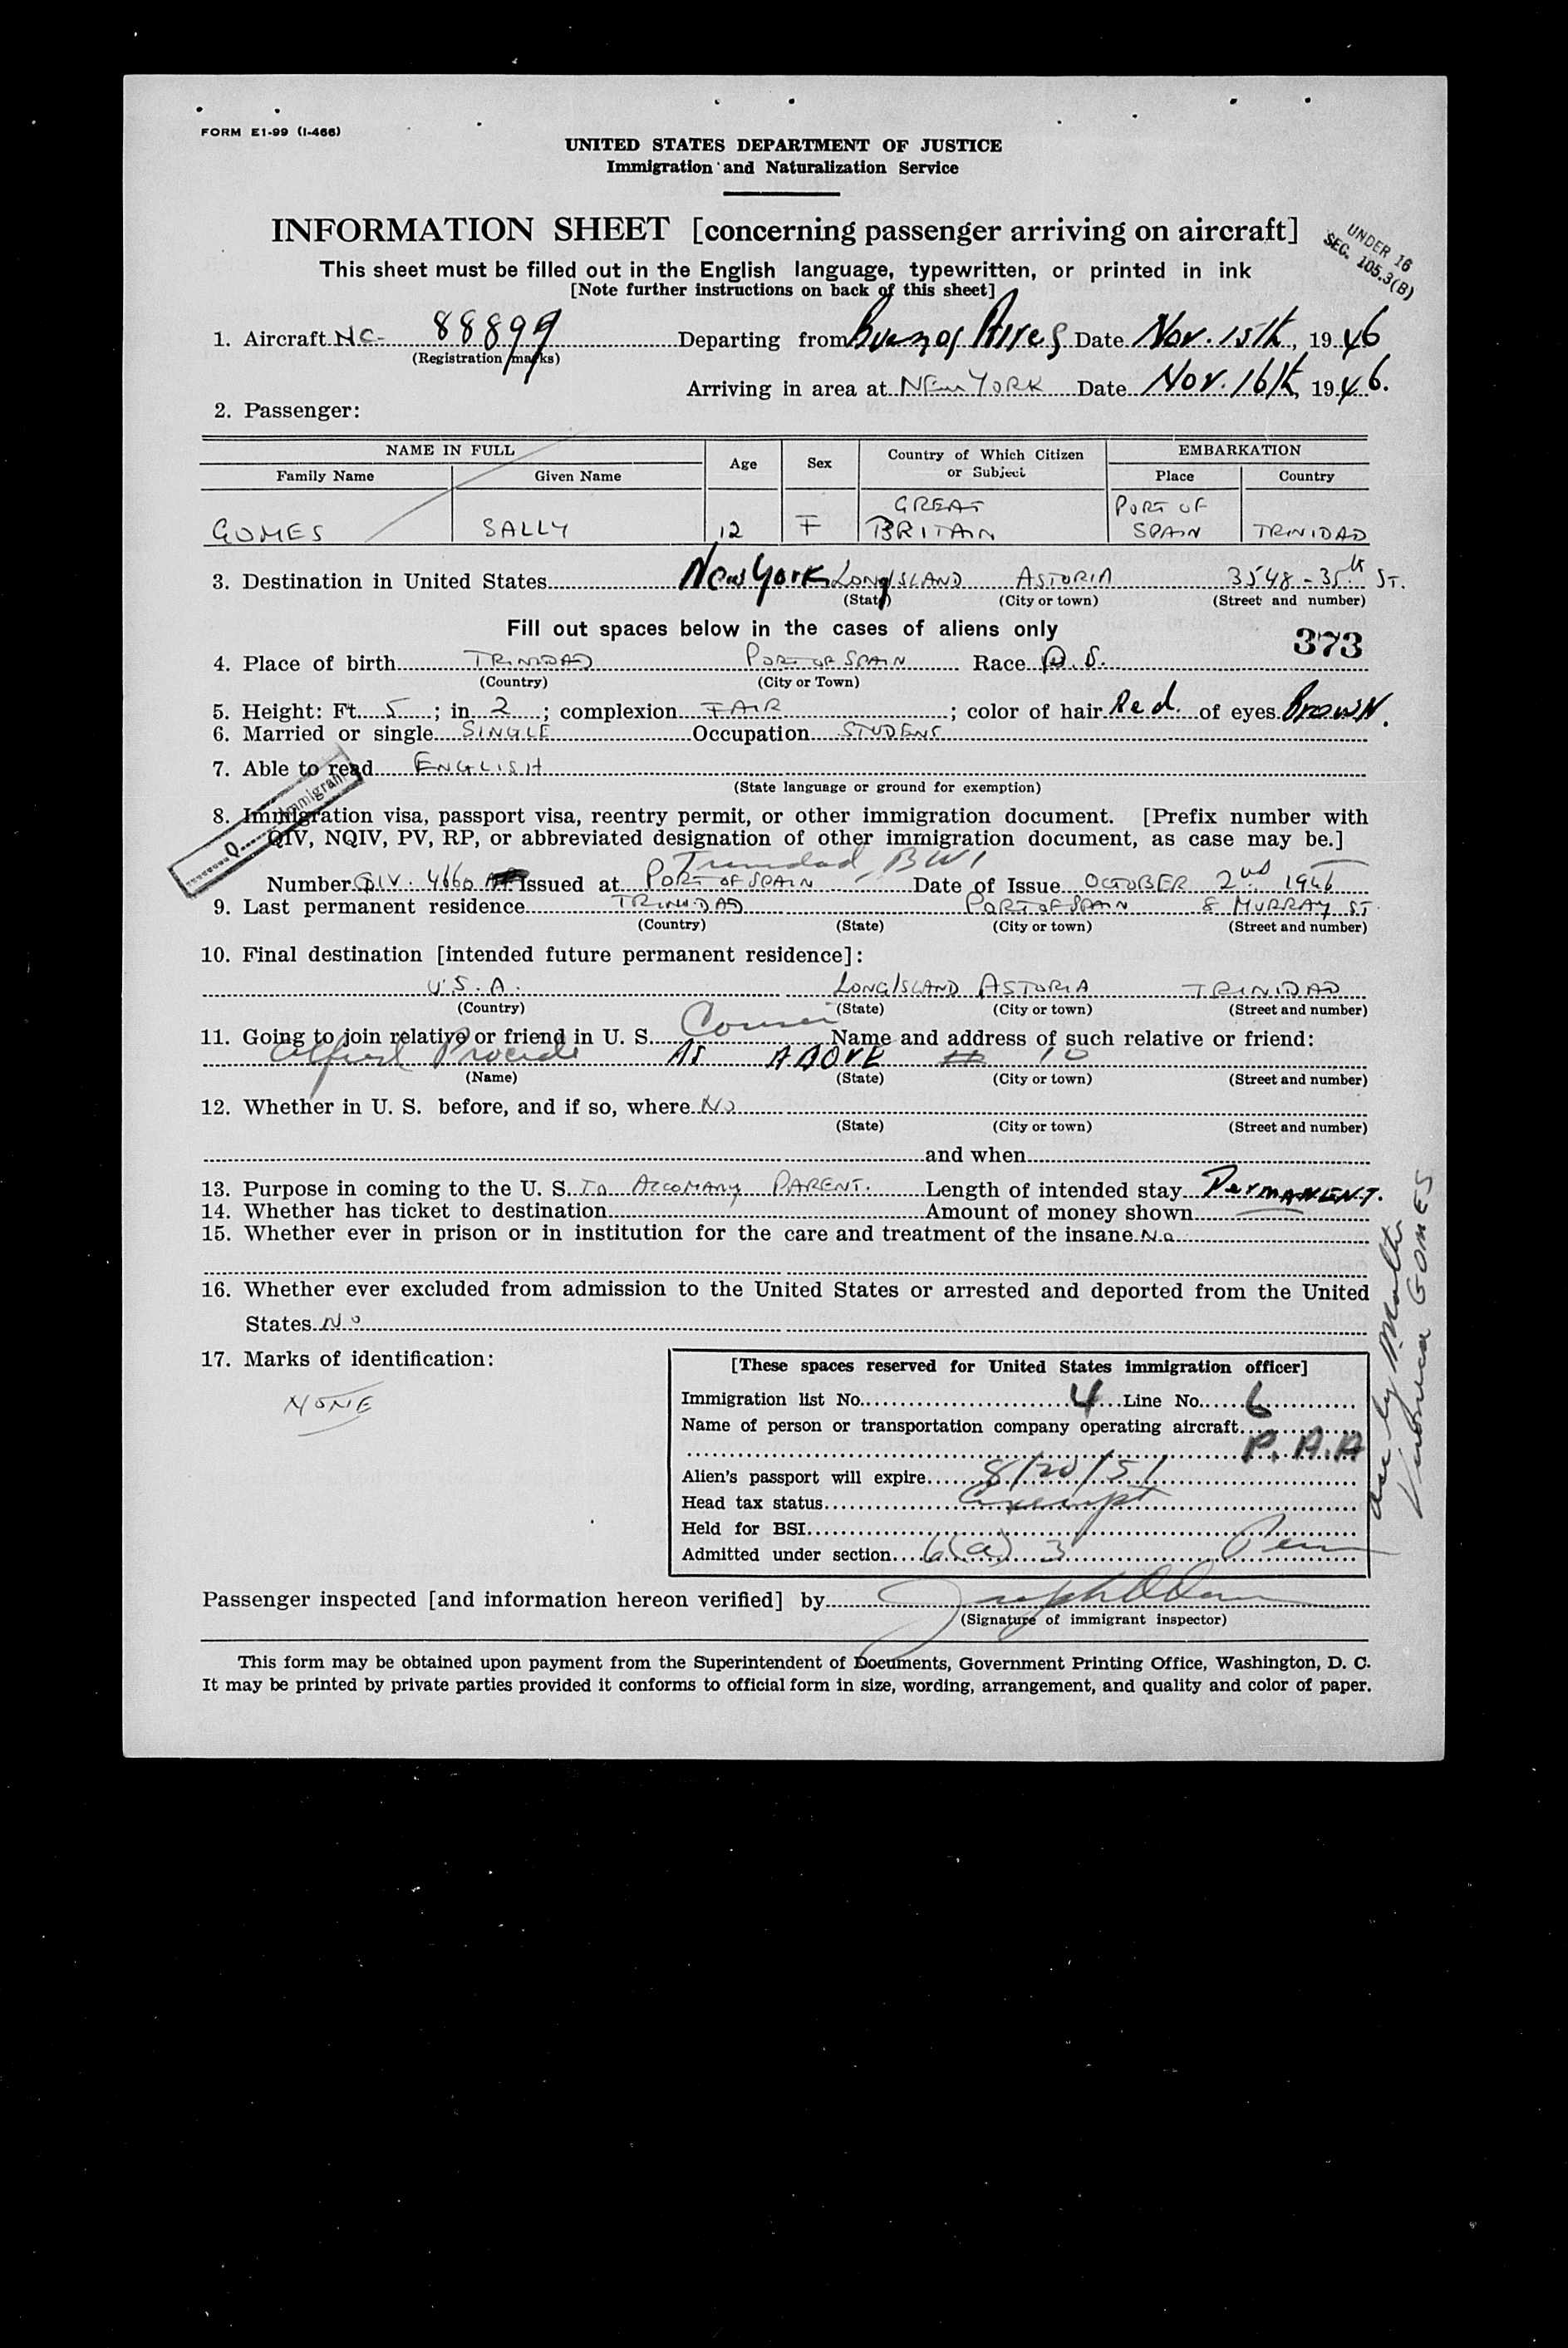 FORM E1-99 (I-466)
UNITED STATES DEPARTMENT OF JUSTICE
Immigration and Naturalization Service
INFORMATION SHEET [concerning passenger arriving on aircraft]
UNDER 16
SEC. 105.3(B)
This sheet must be filled out in the English language, typewritten, or printed in ink
[Note further instructions on back of this sheet]
1. Aircraft NC- 88899 Departing from Buenos Aires Date Nov. 15th, 1946
(Registration marks)
Arriving in area at NEW YORK Date Nov. 16th, 1946.
2. Passenger:
NAME IN FULL Age Sex Country of Which Citizen or Subject EMBARKATION
Family Name Given Name Place Country
GOMES SALLY 12 F GREAT BRITAIN PORT OF SPAIN TRINIDAD
3. Destination in United States New York LONG ISLAND ASTORIA 3548-35th ST.
(State) (City or town) (Street and number)
Fill out spaces below in the cases of aliens only
373
4. Place of birth TRINIDAD PORT OF SPAIN Race
(Country) (City or Town)
5. Height: Ft. 5; in 2; complexion FAIR; color of hair Red. of eyes BROWN.
6. Married or single SINGLE Occupation STUDENT
7. Able to read ENGLISH
(State language or ground for exemption)
Q Immigrant
8. Immigration visa, passport visa, reentry permit, or other immigration document. [Prefix number with
QIV, NQIV, PV, RP, or abbreviated designation of other immigration document, as case may be.]
Trinidad, BWI
Number QIV. 4660 Issued at PORT OF SPAIN Date of Issue OCTOBER 2nd 1946
9. Last permanent residence TRINIDAD PORT OF SPAIN 8 MURRAY ST
(Country) (State) (City or town) (Street and number)
10. Final destination [intended future permanent residence]:
U.S.A. LONG ISLAND ASTORIA TRINIDAD
(Country) (State) (City or town) (Street and number)
11. Going to join relative or friend in U. S. Cousin Name and address of such relative or friend:
Alfred AS ABOVE
(Name) (State) (City or town) (Street and number)
12. Whether in U. S. before, and if so, where No
(State) (City or town) (Street and number)
and when
13. Purpose in coming to the U. S. To ACCOMANY PARENT. Length of intended stay PERMANENT.
14. Whether has ticket to destination Amount of money shown
15. Whether ever in prison or in institution for the care and treatment of the insane No
16. Whether ever excluded from admission to the United States or arrested and deported from the United
States No
17. Marks of identification:
NONE
[These spaces reserved for United States immigration officer]
Immigration list No. 4 Line No. 6
Name of person or transportation company operating aircraft
P.A.A
Alien's passport will expire 8/20/51
Head tax status exempt
Held for BSI
Admitted under section 6(a) 3 Perm
Acc by Mother
GOMES
Passenger inspected [and information hereon verified] by
(Signature of immigrant inspector)
This form may be obtained upon payment from the Superintendent of Documents, Government Printing Office, Washington, D. C.
It may be printed by private parties provided it conforms to official form in size, wording, arrangement, and quality and color of paper.